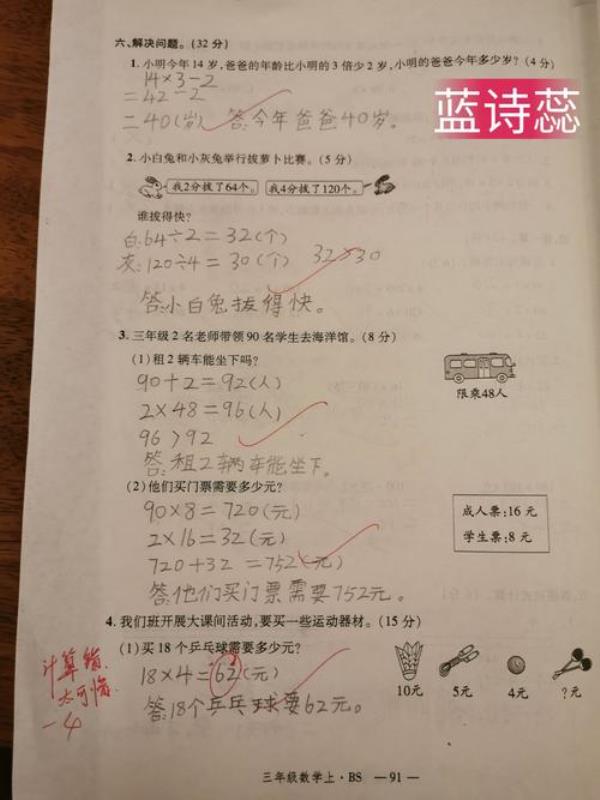 六、解决问题。(32分)
1. 小明今年14岁,爸爸的年龄比小明的3倍少2岁,小明的爸爸今年多少岁?(4分)
14×3-2
=42-2
=40(岁) 答:今年爸爸40岁。
蓝诗蕊
2. 小白兔和小灰兔举行拔萝卜比赛。(5分)
我2分拔了64个。 我4分拔了120个。
谁拔得快?
白:64÷2=32(个)
灰:120÷4=30(个) 32>30
答:小白兔拔得快。
3. 三年级2名老师带领90名学生去海洋馆。(8分)
(1)租2辆车能坐下吗?
90+2=92(人)
2×48=96(人)
96>92
答:租2辆车能坐下。
限乘48人
(2)他们买门票需要多少元?
90×8=720(元)
2×16=32(元)
720+32=752(元)
答:他们买门票需要752元。
成人票:16元
学生票:8元
4. 我们班开展大课间活动,要买一些运动器材。(15分)
(1)买18个乒乓球需要多少元?
18×4=62(元)
答:18个乒乓球要62元。
10元 5元 4元 ?元
计算错,
太可惜.
-4
三年级数学上·BS —91—